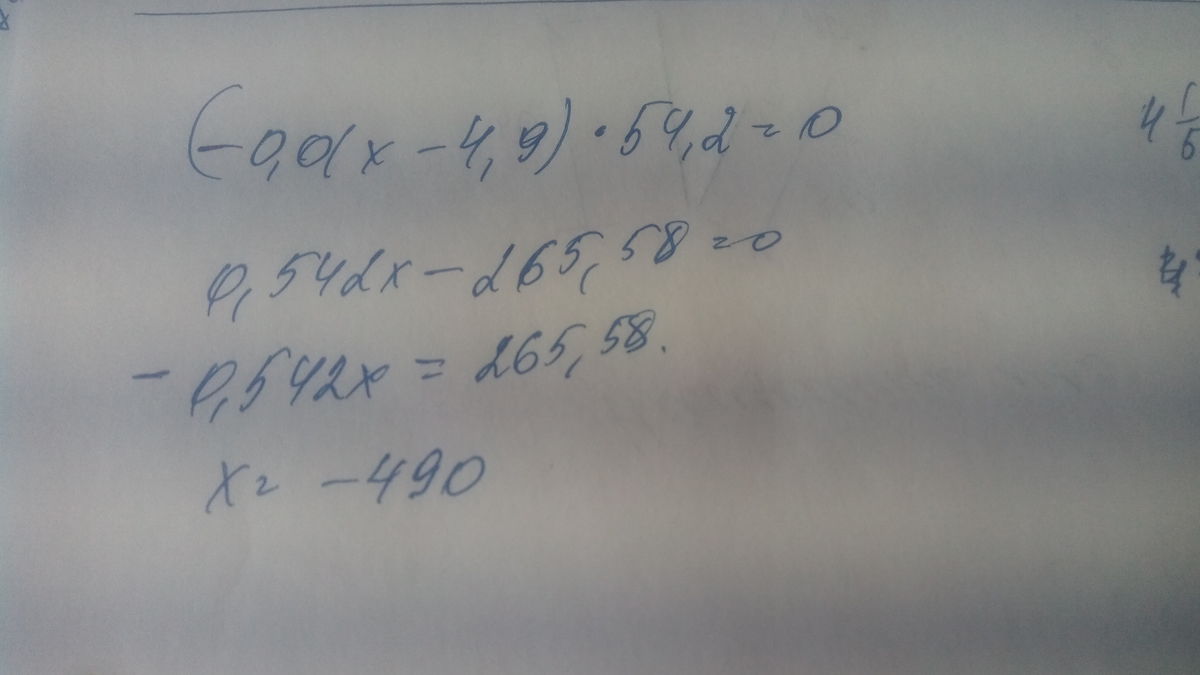 (-0,01x - 4,9) · 54,2 = 0
0,542x - 265,58 = 0
- 0,542x = 265,58.
x = -490
4 1/6